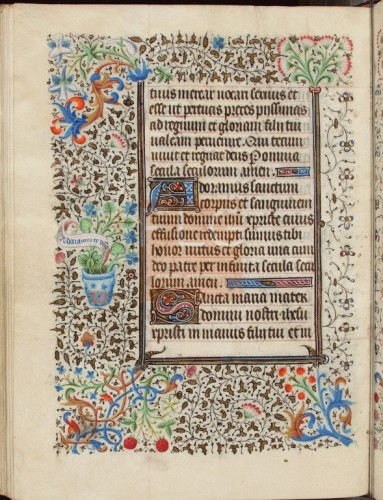 tuus merear vocari servus et
esse ut per tuas preces pijssimas
ad regnum et gloriam filij tui
valeam pervenire. Qui tecum
vivit et regnat deus Per omnia
secula seculorum. amen.
Adoramus sanctum
corpus et sanguinem
tuum domine ihu xpriste cuius
effusione redempti sumus tibi
honor virtus et gloria una cum
deo patre per infinita secula secu
lorum. amen.
Sancta maria mater
domini nostri ihesu
xpristi in manus filij tui et in